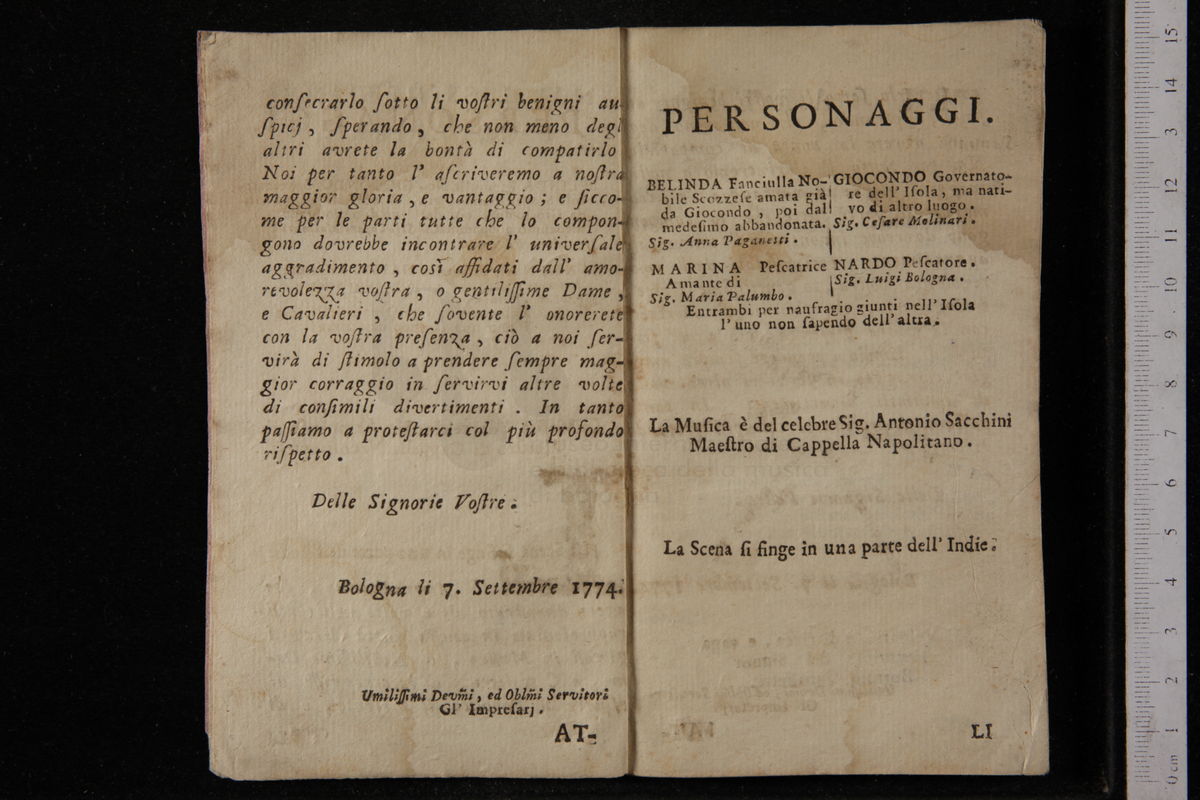 conſecrarlo ſotto li voſtri benigni au
ſpicj, ſperando, che non meno degl
altri avrete la bontà di compatirlo
Noi per tanto l' aſcriveremo a noſtra
maggior gloria, e vantaggio; e ſicco-
me per le parti tutte che lo compon-
gono dovrebbe incontrare l' univerſale
aggradimento, così affidati dall' amo-
revolezza voſtra, o gentiliſſime Dame,
e Cavalieri, che ſovente l' onorerete
con la voſtra preſenza, ciò a noi ſer-
virà di ſtimolo a prendere ſempre mag-
gior corraggio in ſervirvi altre volte
di conſimili divertimenti. In tanto
paſſiamo a proteſtarci col più profondo
riſpetto.
Delle Signorie Voſtre.
Bologna li 7. Settembre 1774.
Umiliſſimi Devm̃i, ed Oblm̃i Servitori
Gl' Impreſarj.
AT-
PERSONAGGI.
BELINDA Fanciulla No-
bile Scozzeſe amata già
da Giocondo, poi dal
medeſimo abbandonata.
Sig. Anna Paganetti.
MARINA Peſcatrice
Amante di
Sig. Maria Palumbo.
GIOCONDO Governato-
re dell' Iſola, ma nati-
vo di altro luogo.
Sig. Ceſare Molinari.
NARDO Peſcatore.
Sig. Luigi Bologna.
Entrambi per naufragio giunti nell' Iſola
l' uno non ſapendo dell' altra.
La Muſica è del celebre Sig. Antonio Sacchini
Maeſtro di Cappella Napolitano.
La Scena ſi finge in una parte dell' Indie.
LI
0 cm 1 2 3 4 5 6 7 8 9 10 11 12 13 14 15